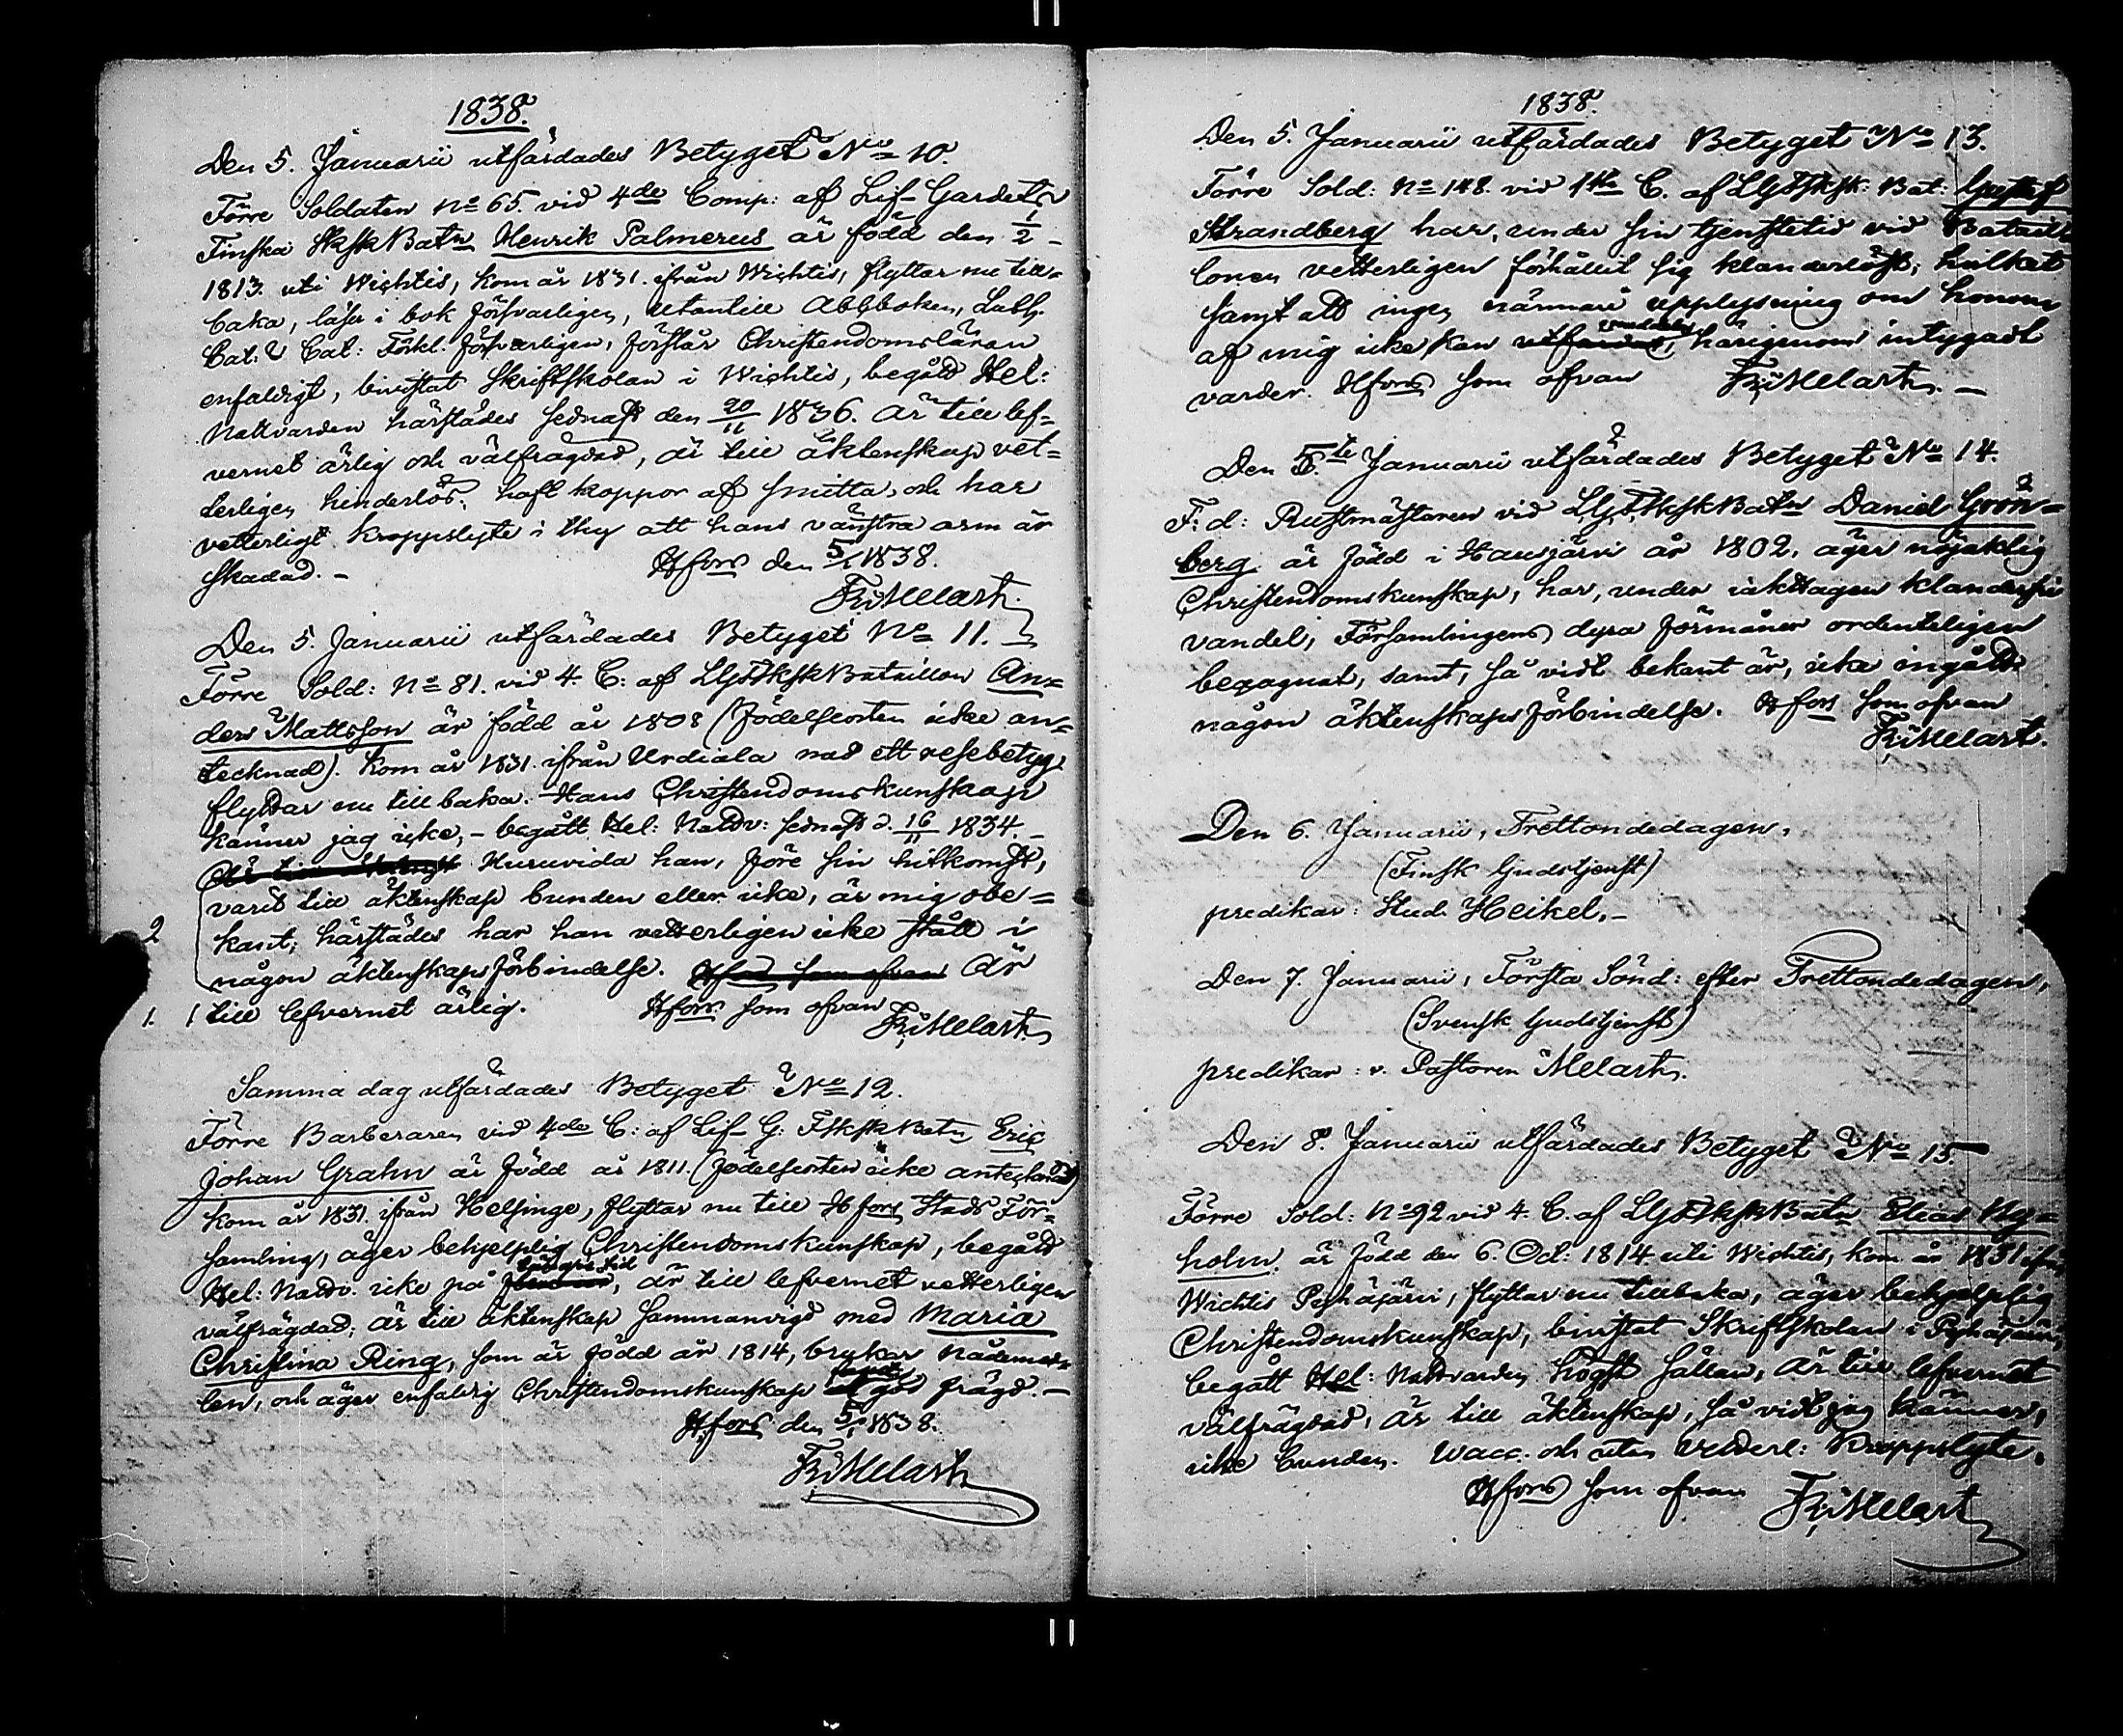 1838.
Den 5. Januarii utfärdades Betyget No 10.
Förre Soldaten No 65. vid 4de Comp: af Lif-Gardets
Finska SkskBatn Henrik Palmerus är född den 1/2
1813. uti Wichtis, kom år 1831. ifrån Wichtis, flyttar nu till-
baka, läser i bok försvarligen, utantill Abcboken, Luth.
Cat: & Cat: Förkl. försvarligen, förstår Christendomsläran
enfaldigt, bivistat Skriftskolan i Wichtis, begått Hel:
Nattvarden härstädes sednast den 20/11 1836. Är till lef-
vernet ärlig och välfrägdad, är till äktenskap vet-
terligen hinderlös, haft koppor af smitta, och har
vetterligt kroppslyte i thy att hans vänstra arm är
skadad. - Hfors den 5/1 1838.
FrMelart.
Den 5. Januarii utfärdades Betyget No 11.
Förre Sold: No 81. vid 4. C: af LGFSkskBataillon An-
ders Mattsson är född år 1808 (födelseorten icke an-
tecknad). Kom år 1831. ifrån Urdiala med ett resebetyg,
flyttar nu tillbaka. Hans Christendomskunskap
känner jag icke, - begått Hel: Nattv: sednast d. 16/11 1834. -
Är till Huruvida han, före sin hitkomst,
varit till äktenskap bunden eller icke, är mig obe-
2 kant; härstädes har han vetterligen icke stått i
någon äktenskapsförbindelse. Hfors som ofvan Är
1. till lefvernet ärlig. Hfors som ofvan
FrMelart.
Samma dag utfärdades Betyget No 12.
Förre Barberaren vid 4de C: af Lif-G: FSkskBatn Eric
Johan Grahn är född år 1811. (födelseorten icke antecknad)
kom år 1831. ifrån Helsinge, flyttar nu till Hfors Stads För-
samling, äger behjelplig Christendomskunskap, begått
Hel: Nattv. icke på längre tid, är till lefvernet vetterligen
välfrägdad, är till äktenskap sammanvigd med Maria
Christina Ring, som är född år 1814, brukar nådemed-
len, och äger enfaldig Christendomskunskap god frägd. -
Hfors den 5/1 1838.
FrMelart
1838.
Den 5. Januarii utfärdades Betyget No 13.
Förre Sold: No 148. vid 1sta C. af LGFSksk: Bat: Gustaf
Strandberg har, under sin tjenstetid vid Batail-
lonen vetterligen förhållit sig klanderlöst; hvilket
samt att ingen närmare upplysning om honom
af mig icke kan meddelas, härigenom intygadt
varder. Hfors som ofvan FrMelart. -
Den 5.te Januarii utfärdades Betyget No 14.
F: d: Rustmästaren vid LGFSkskBatn Daniel Grön-
berg är född i Hausjärvi år 1802. äger nöjaktig
Christendomskunskap, har, under iakttagen klanderfri
vandel, Församlingens dyra förmåner ordenteligen
begagnat, samt, så vidt bekant är, icke ingått
någon äktenskapsförbindelse. Hfors som ofvan
FrMelart.
Den 6. Januarii, Trettondedagen,
(Finsk Gudstjenst)
predikar: Stud. Heikel. -
Den 7. Januarii, Första Sönd: efter Trettondedagen,
(Svensk Gudstjenst)
predikar: v. Pastoren Melart.
Den 8. Januarii utfärdades Betyget No 15.
Förre Sold: No 92 vid 4. C. af LGFSkskBatn Elias By-
holm. är född den 6. Oct: 1814 uti Wichtis, kom år 1831 ifrån
Wichtis Pyhäjärvi, flyttar nu tillbaka, äger behjelplig
Christendomskunskap, bivistat Skriftskolan i Pyhäjärvi,
begått Hel: Nattvarden högst sällan, är till lefvernet
välfrägdad, är till äktenskap, så vidt jag känner,
icke bunden. Wacc. och utan vetterl: kroppslyte.
Hfors som ofvan FrMelart